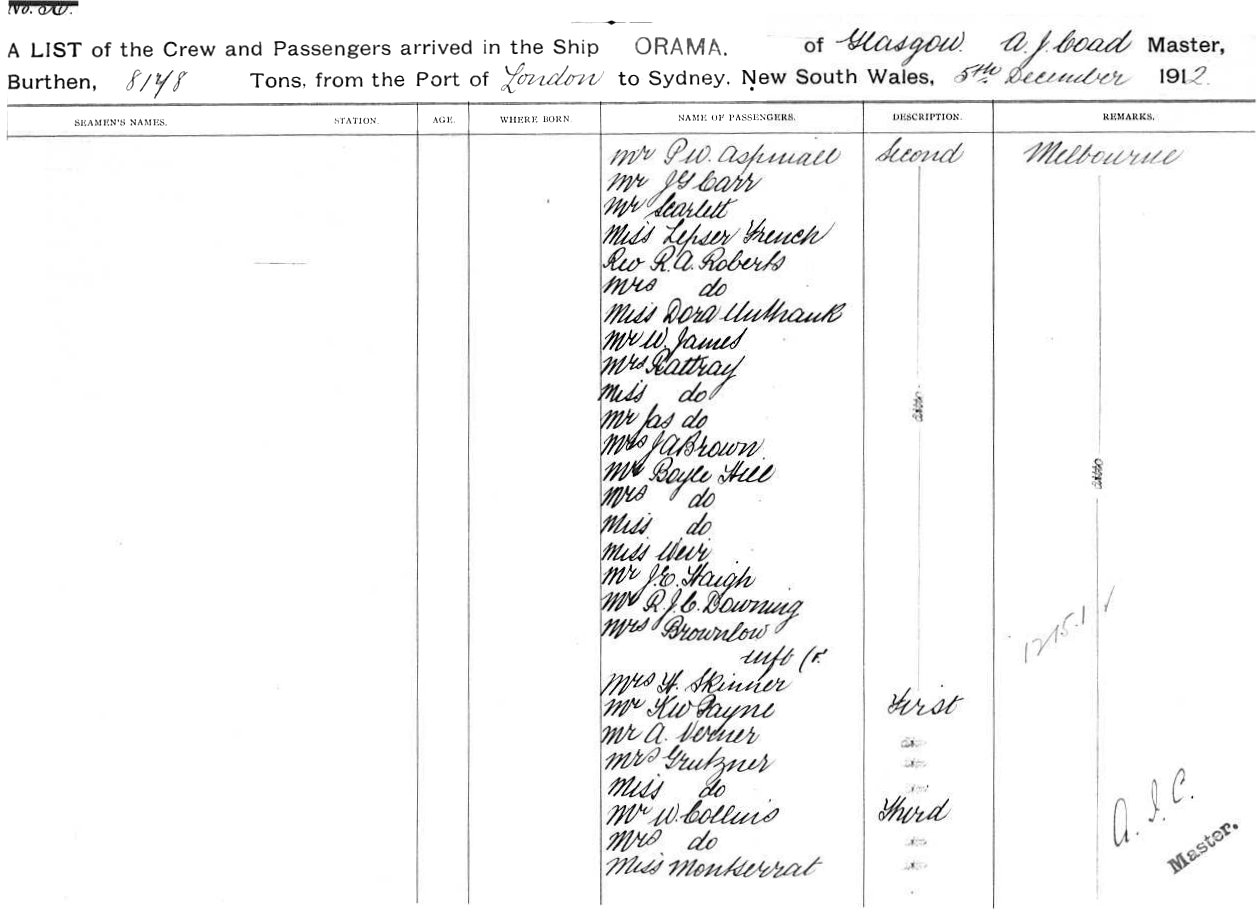 No. 56.
A LIST of the Crew and Passengers arrived in the Ship ORAMA. of Glasgow. A. J. Coad Master,
Burthen, 8178 Tons, from the Port of London to Sydney, New South Wales, 5th December 1912.
SEAMEN'S NAMES. STATION. AGE. WHERE BORN. NAME OF PASSENGERS. DESCRIPTION. REMARKS.
Mr P W. Aspinall Second Melbourne
Mr J G Carr
Mr Scarlett
Miss French
Rev R. A. Roberts
Mrs do
Miss Dora Unthank
Mr W. James
Mrs Rattray
Miss do
Mr Jas do ditto
Mrs J A Brown
Mr Boyle Hill ditto
Mrs do
Miss do
Miss Weir
Mr J. E. Haigh
Mr R. J. C. Downing
Mrs Brownlow 1275.1
inft
Mrs H. Skinner
Mr K W Payne First
Mr A. Verner ditto
Mrs Grutzner ditto
Miss do ditto
Mr W. Collins Third A. J. C.
Mrs do ditto Master.
Miss Montserrat ditto